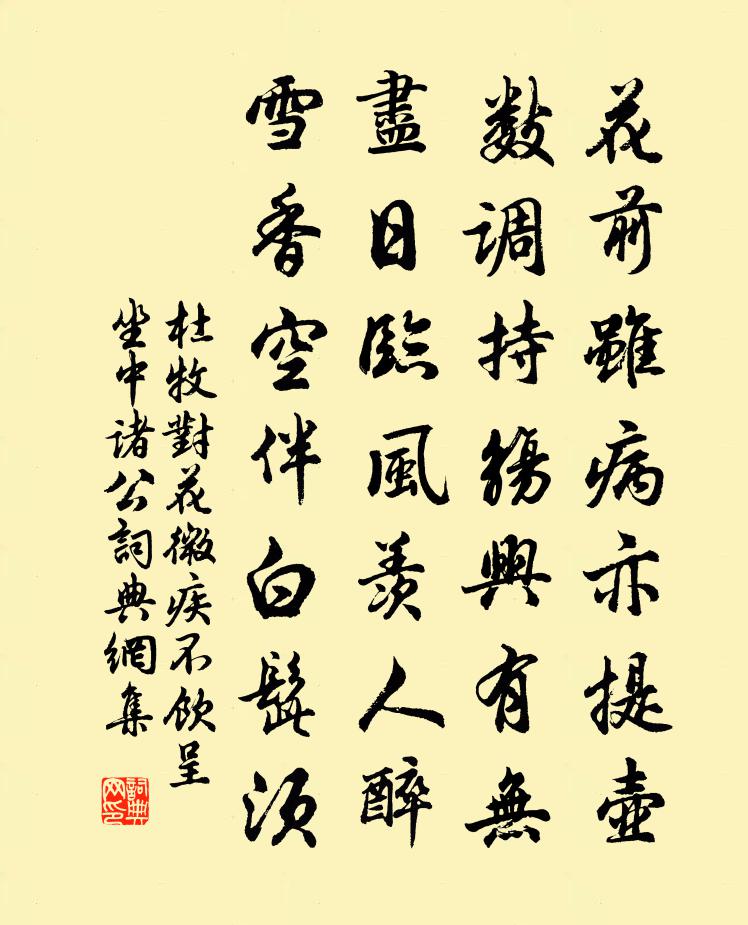 花前雖病亦提壺
数調持觴興有無
盡日臨風羨人醉
雪香空伴白髭須
杜牧對花微疾不飲呈
坐中諸公詞典網集
詞典网印